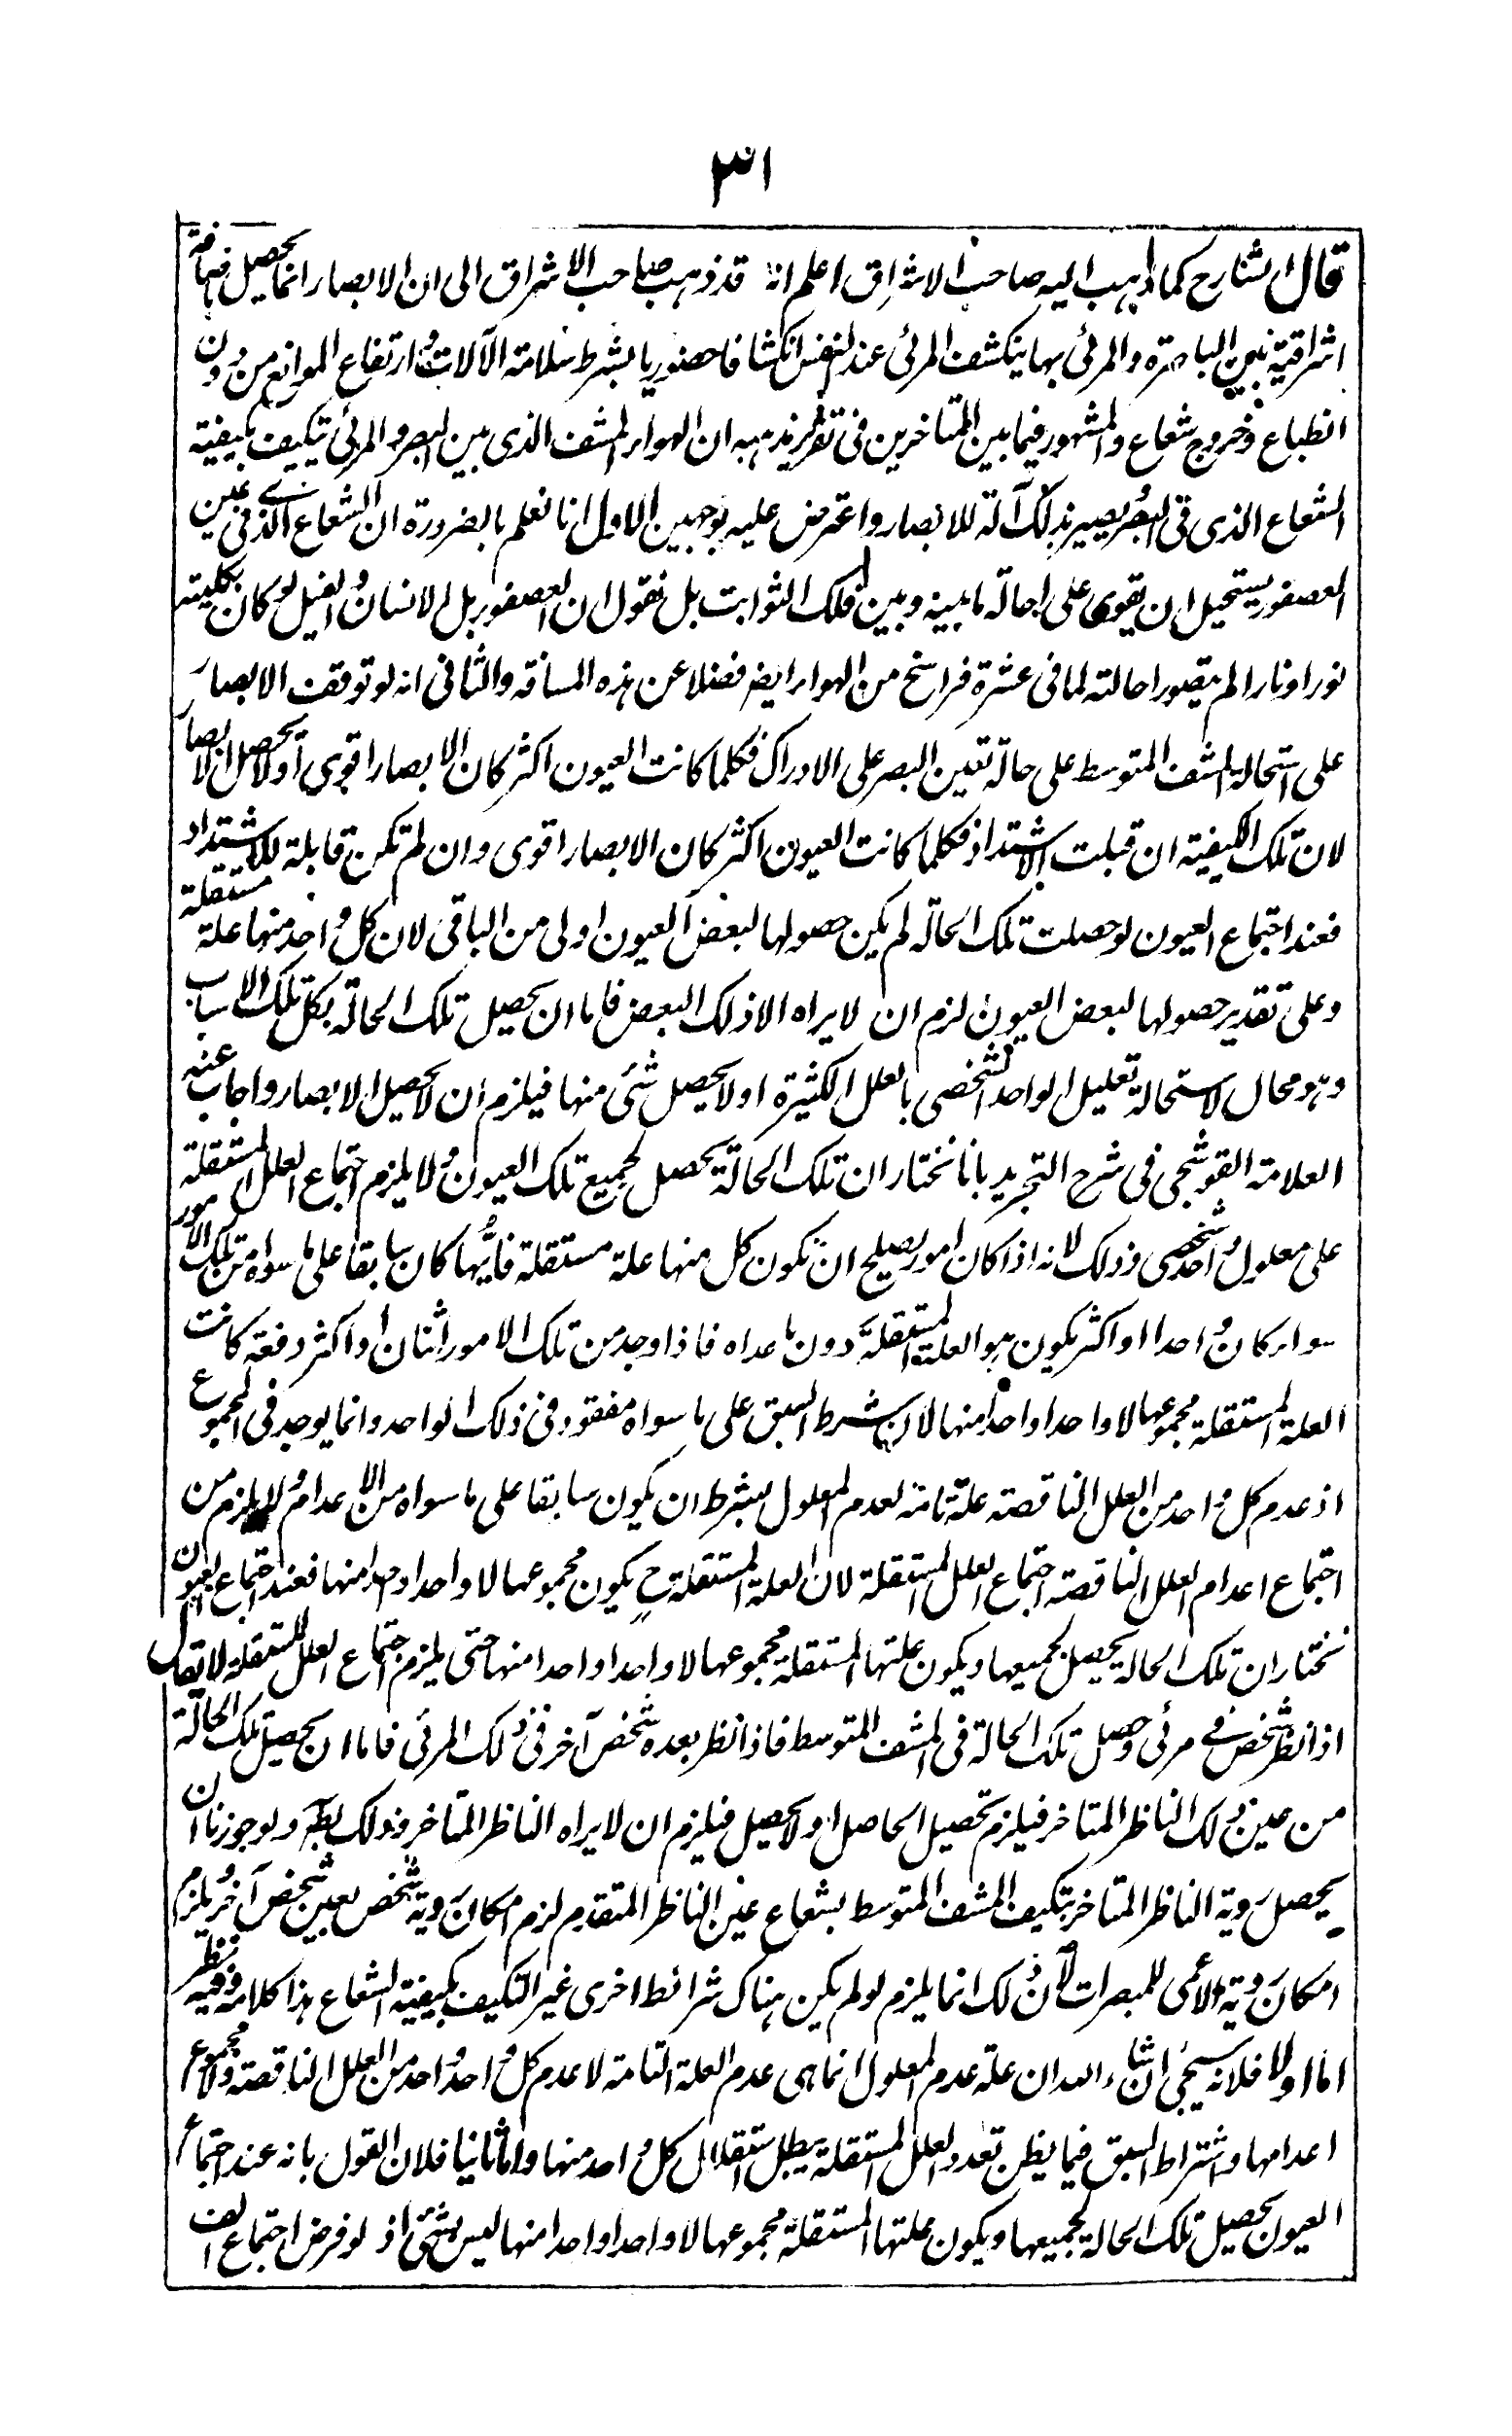 ٣١
قال الشارح كما ذهب اليه صاحب الاشراق اعلم انه قد ذهب صاحب الاشراق الى ان الابصار انما يحصل باضافة
اشراقية بين الباصرة والمرئى بها ينكشف المرئى عند النفس انكشافا حضوريا بشرط سلامة الآلات وارتفاع الموانع من دون
انطباع وخروج شعاع والمشهور فيما بين المتاخرين فى تقرير مذهبه ان الهواء المشف الذى بين البصر والمرئى يتكيف بكيفية
الشعاع الذى فى البصر يصير بذلك آلة للابصار واعترض عليه بوجهين الاول انا نعلم بالضرورة ان الشعاع الذى فى عين
العصفور يستحيل ان يقوى على احالة ما بينه وبين فلك الثوابت بل نقول ان العصفور بل الانسان والفيل لو كان بكليته
نورا او نارا لم يتصور احالته لما فى عشرة فراسخ من الهواء ايض فضلا عن هذه المسافة والثانى انه لو توقف الابصار
على استحالة المشف المتوسط على حالة تعين البصر على الادراك فكلما كانت العيون اكثر كان الابصار اقوى او لا يحصل الابصار
لان تلك الكيفية ان قبلت الاشتداد فكلما كانت العيون اكثر كان الابصار اقوى وان لم تكن قابلة للاشتداد
فعند اجتماع العيون لو حصلت تلك الحالة لم يكن حصولها لبعض العيون اولى من الباقى لان كل واحد منها علة مستقلة
وعلى تقدير حصولها لبعض العيون لزم ان لا يراه الا ذلك البعض فاما ان يحصل تلك الحالة بكل تلك الاسباب
وهو محال لاستحالة تعليل الواحد الشخصى بالعلل الكثيرة او لا يحصل شئ منها فيلزم ان لا يحصل الابصار واجاب عنه
العلامة القوشجى فى شرح التجريد بانا نختار ان تلك الحالة يحصل لجميع تلك العيون ولا يلزم اجتماع العلل المستقلة
على معلول واحد شخصى وذلك لانه اذا كان امور يصلح ان تكون كل منها علة مستقلة فايُّها كان سابقا على ما سواه من تلك الامور
سواء كان واحدا او اكثر يكون هو العلة المستقلة دون ما عداه فاذا وجد من تلك الامور اثنان او اكثر دفعة كانت
العلة المستقلة مجموعها لا واحدا واحدا منها لان شرط السبق على ما سواه مفقود فى ذلك الواحد وانما يوجد فى المجموع
اذ عدم كل واحد من العلل الناقصة علة تامة لعدم المعلول بشرط ان يكون سابقا على ما سواه من الاعدام ولا يلزم من
اجتماع اعدام العلل الناقصة اجتماع العلل المستقلة لان العلة المستقلة ح يكون مجموعها لا واحدا واحدا منها فعند اجتماع العيون
نختار ان تلك الحالة يحصل لجميعها ويكون علتها المستقلة مجموعها لا واحدا واحدا منها حتى يلزم اجتماع العلل المستقلة لا يقال
اذا نظر شخص فى مرئى وحصل تلك الحالة فى المشف المتوسط فاذا نظر بعده شخص آخر فى ذلك المرئى فاما ان يحصل تلك الحالة
من عين ذلك الناظر المتاخر فيلزم تحصيل الحاصل او لا يحصل فيلزم ان لا يراه الناظر المتاخر وذلك بط ولو جوزنا ان
يحصل روية الناظر المتاخر بتكيف المشف المتوسط بشعاع عين الناظر المتقدم لزم امكان روية شخص بعين شخص آخر ويلزم
امكان روية الاعمى للمبصرات لان ذلك انما يلزم لو لم يكن هناك شرائط اخرى غير التكيف بكيفية الشعاع هذا كلامه وفيه نظر
اما اولا فلانه سيجئ انشاء الله ان علة عدم المعلول انما هى عدم العلة التامة لا عدم كل واحد واحد من العلل الناقصة ولا مجموع
اعدامها واشتراط السبق فيما يظن تعدد العلل المستقلة يبطل استقلال كل واحد منها واما ثانيا فلان القول بانه عند اجتماع
العيون يحصل تلك الحالة لجميعها ويكون علتها المستقلة مجموعها لا واحدا واحدا منها ليس بشئ اذ لو فرض اجتماع الف